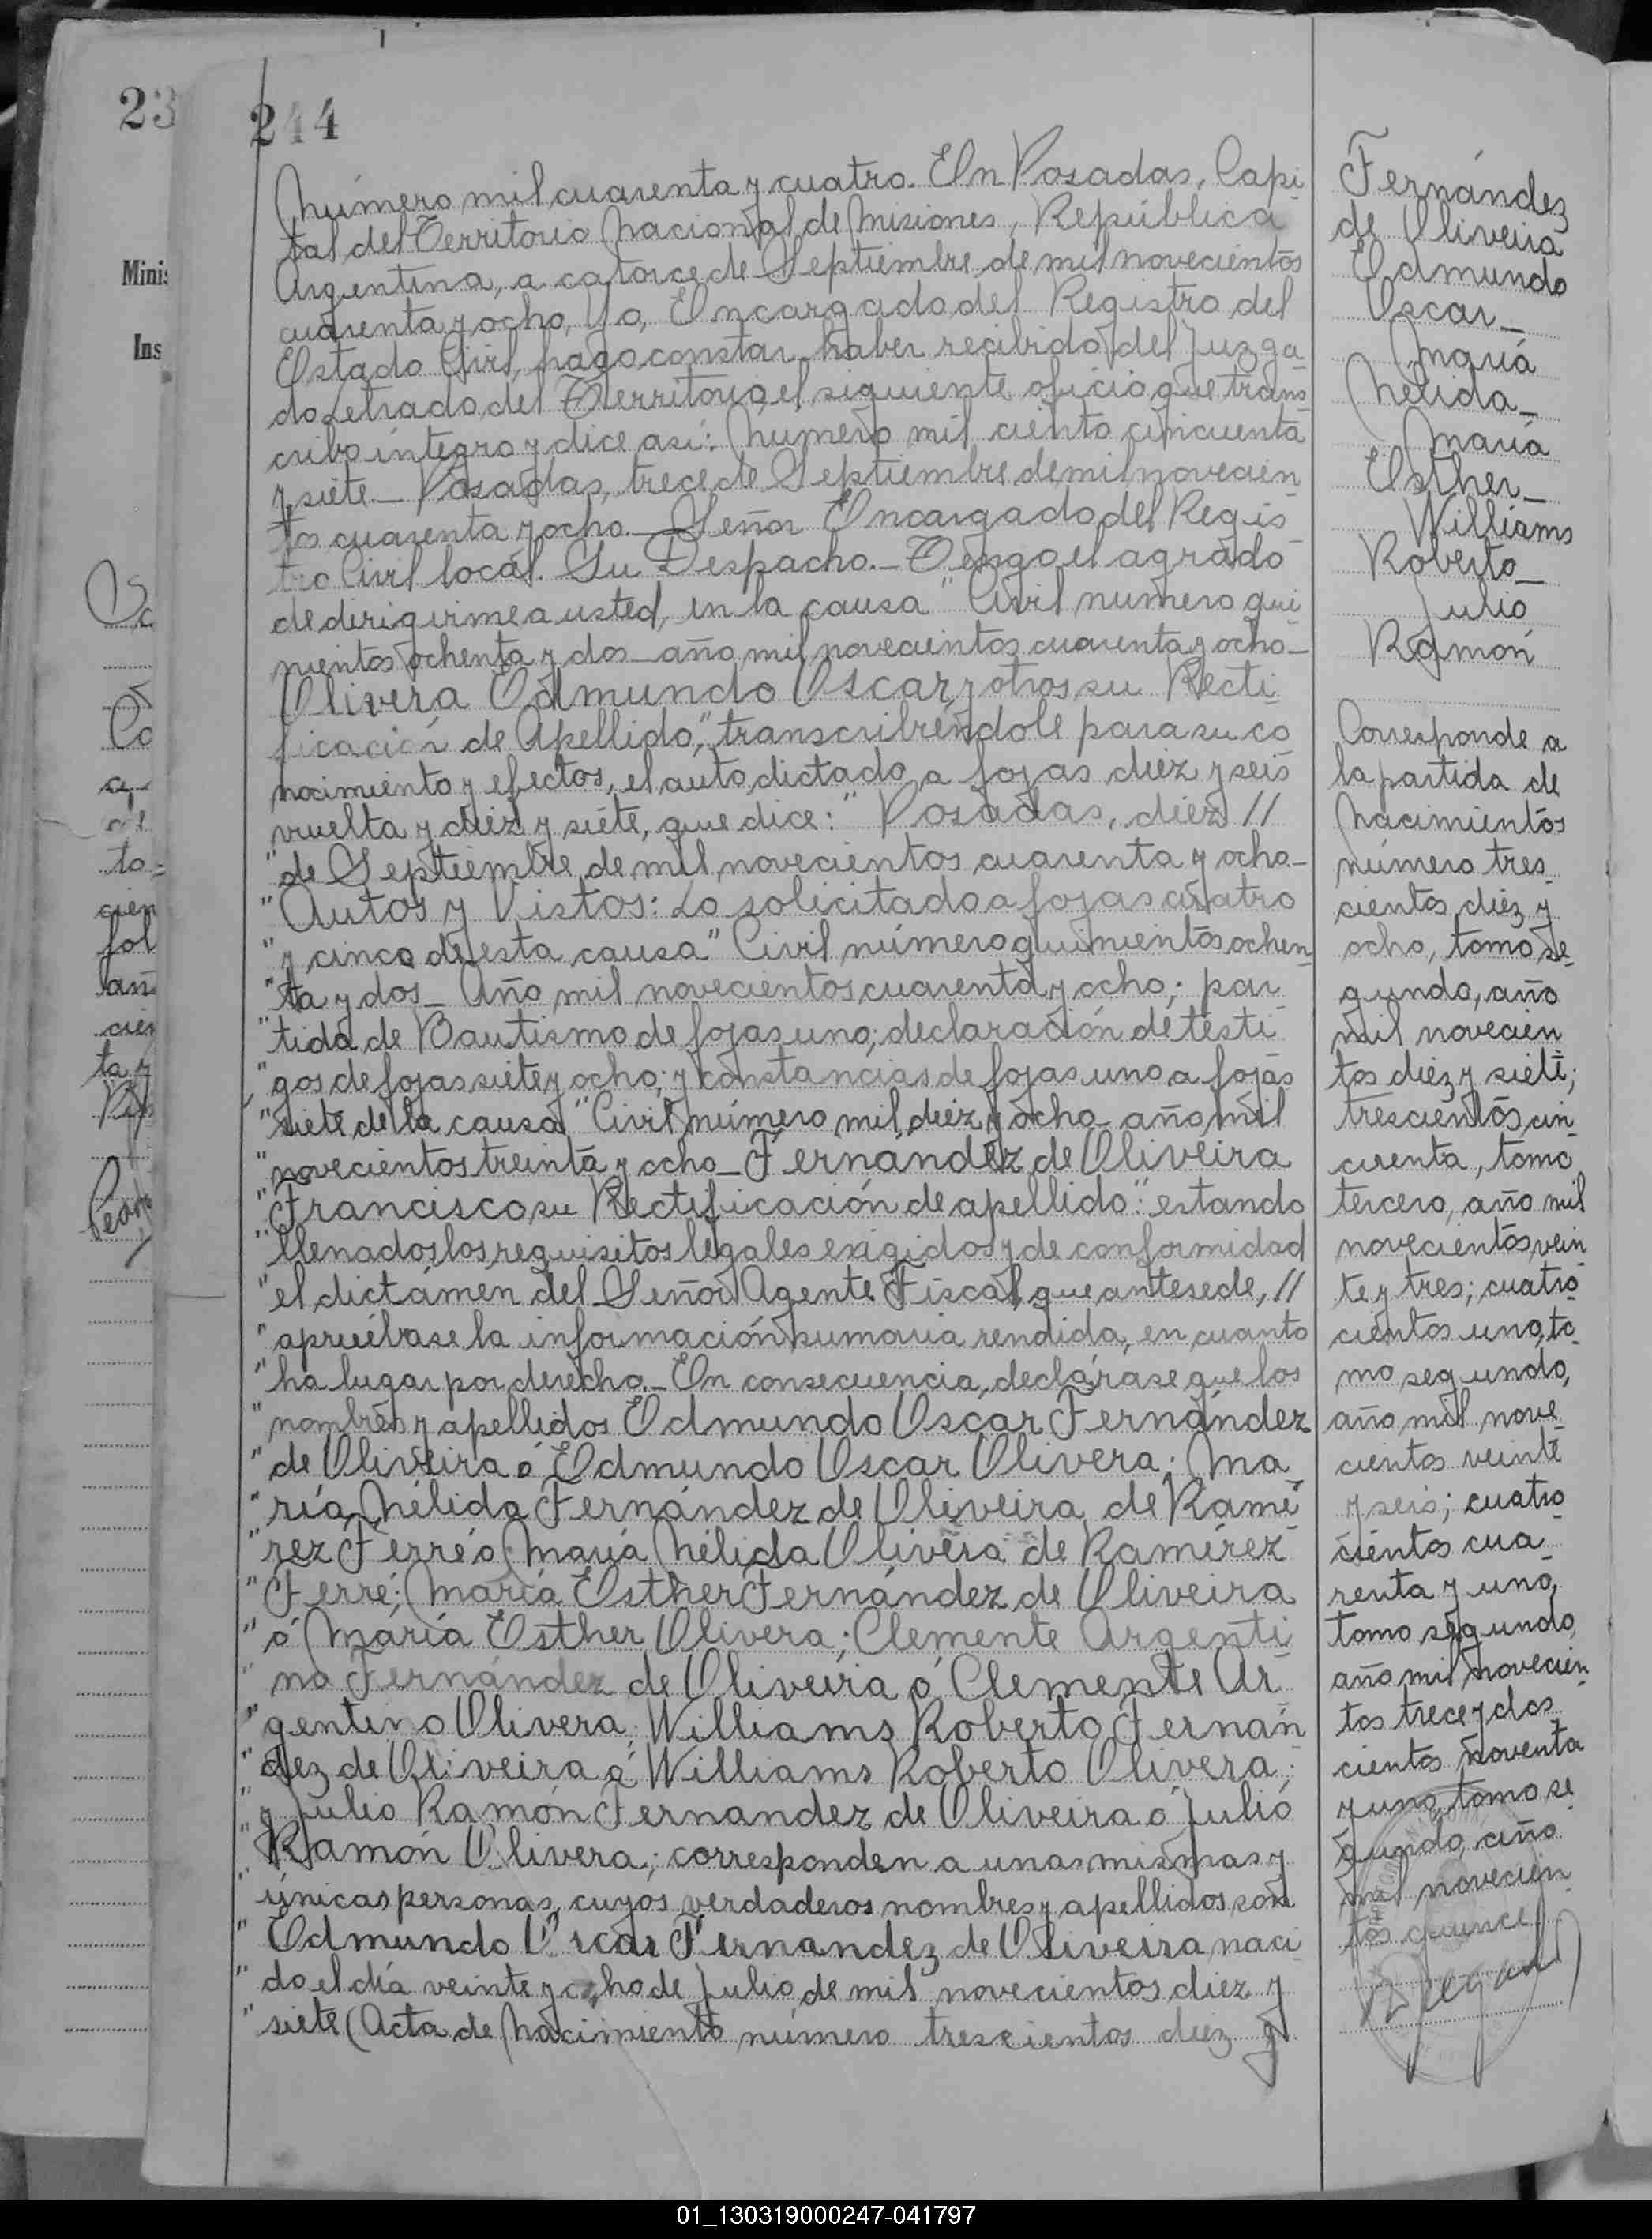 23
Minis
Ins
244
Número mil cuarenta y cuatro. En Posadas, Capi-
tal del Territorio Nacional de Misiones, República
Argentina, a catorce de Septiembre de mil novecientos
cuarenta y ocho, Yo, Encargado del Registro del
Estado Civil, hago constar haber recibido del Juzga-
do Letrado del Territorio el siguiente oficio que trans-
cribo íntegro y dice así: Número mil ciento cincuenta
y siete_ Posadas, trece de Septiembre de mil novecien-
tos cuarenta y ocho._ Señor Encargado del Regis-
tro Civil locál. Su Despacho._ Tengo el agrado
de dirigirme a usted, en la causa "Civil numero qui-
nientos ochenta y dos_ año mil novecientos cuarenta y ocho_
Olivera Edmundo Oscar y otros su Recti-
ficación de Apellido", transcribiéndole para su co-
nocimiento y efectos, el auto dictado a fojas diez y seis
vuelta y diez y siete, que dice: "Posadas, diez //
"de Septiembre de mil novecientos cuarenta y ocho_
"Autos y Vistos: Lo solicitado a fojas cuatro
"y cinco de esta causa "Civil número quinientos ochen-
"ta y dos_ Año mil novecientos cuarenta y ocho; par-
"tida de Bautismo de fojas uno; declaración de testi-
"gos de fojas siete y ocho; y constancias de fojas uno a fojas
"siete de la causa "Civil número mil diez y ocho_ año mil
"novecientos treinta y ocho_ Fernández de Oliveira
"Francisco su Rectificación de apellido": estando
"llenados los requisitos legales exigidos y de conformidad
"el dictámen del Señor Agente Fiscal, que antesede, //
"apruébase la información sumaria rendida, en cuanto
"ha lugar por derecho._ En consecuencia, declárase que los
"nombres y apellidos Edmundo Oscar Fernández
"de Oliveira ó Edmundo Oscar Olivera; Ma-
"ría Nélida Fernández de Oliveira de Ramí-
"rez Ferré ó María Nélida Olivera de Ramírez
"Ferré; María Esther Fernández de Oliveira
"ó María Esther Olivera; Clemente Argenti-
"no Fernández de Oliveira ó Clemente Ar-
"gentino Olivera; Williams Roberto Fernán-
"dez de Oliveira ó Williams Roberto Olivera;
"y Julio Ramón Fernandez de Oliveira ó Julio
"Ramón Olivera; corresponden a unas mismas y
"únicas personas, cuyos verdaderos nombres y apellidos son
"Edmundo Oscar Fernandez de Oliveira naci-
"do el día veinte y ocho de Julio de mil novecientos diez y
"siete (Acta de Nacimiento número trescientos diez y
Fernández
de Oliveira
Edmundo
Oscar_
María
Nélida_
María
Esther_
Williams
Roberto_
Julio
Ramón
Corresponde a
la partida de
Nacimientos
número tres-
cientos diez y
ocho, tomo se-
gundo, año
mil novecien-
tos diez y siete;
trescientos cin-
cuenta, tomo
tercero, año mil
novecientos vein-
te y tres; cuatro-
cientos uno, to-
mo segundo,
año mil nove-
cientos veinte
y seis; cuatro-
cientos cua-
renta y uno,
tomo segundo,
año mil novecien-
tos trece y dos-
cientos noventa
y uno, tomo se-
gundo, año
mil novecien-
tos quince
01_130319000247-041797